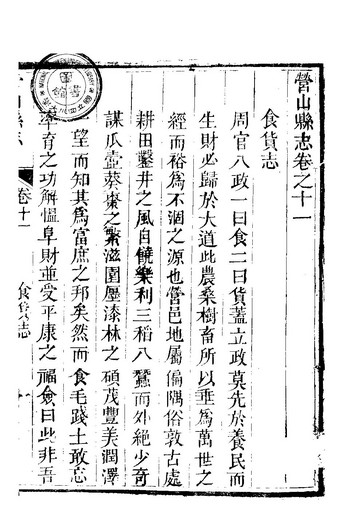 營山縣志卷之十一
食貨志
周官八政一曰食二曰貨蓋立政莫先於養民而
生財必歸於大道此農桑樹畜所以垂為萬世之
經而裕為不涸之源也營邑地屬偏隅俗敦古處
耕田鑿井之風自饒樂利三稻八蠶而外絕少奇
謀瓜壺葵棗之繁滋園廛漆林之碩茂豐美潤澤
一望而知其為富庶之邦矣然而食毛踐土敢忘
率育之功解慍阜財並受平康之福僉曰此非吾
縣志
卷十一
食貨志